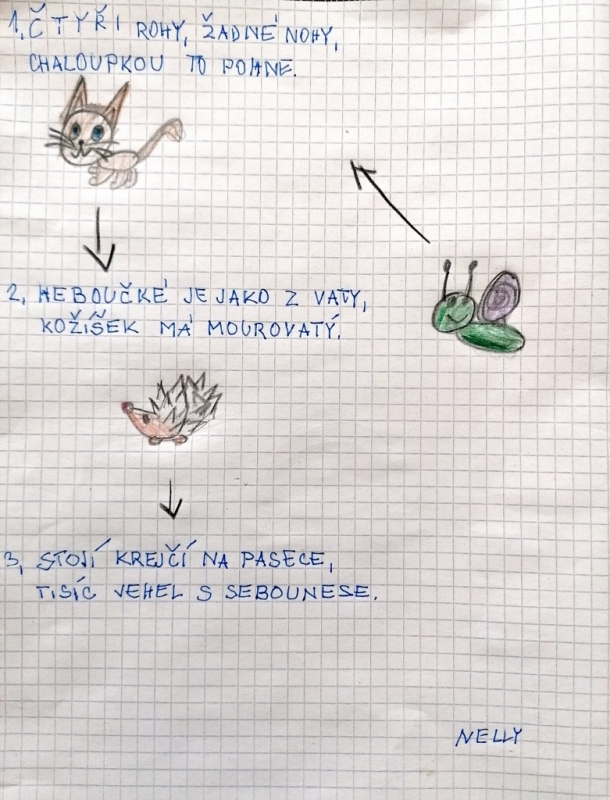 1, ČTYŘI ROHY, ŽÁDNÉ NOHY,
CHALOUPKOU TO POHNE.
2, HEBOUČKÉ JE JAKO Z VATY,
KOŽÍŠEK MÁ MOUROVATÝ.
3, STOJÍ KREJČÍ NA PASECE,
TISÍC JEHEL S SEBOUNESE.
NELLY